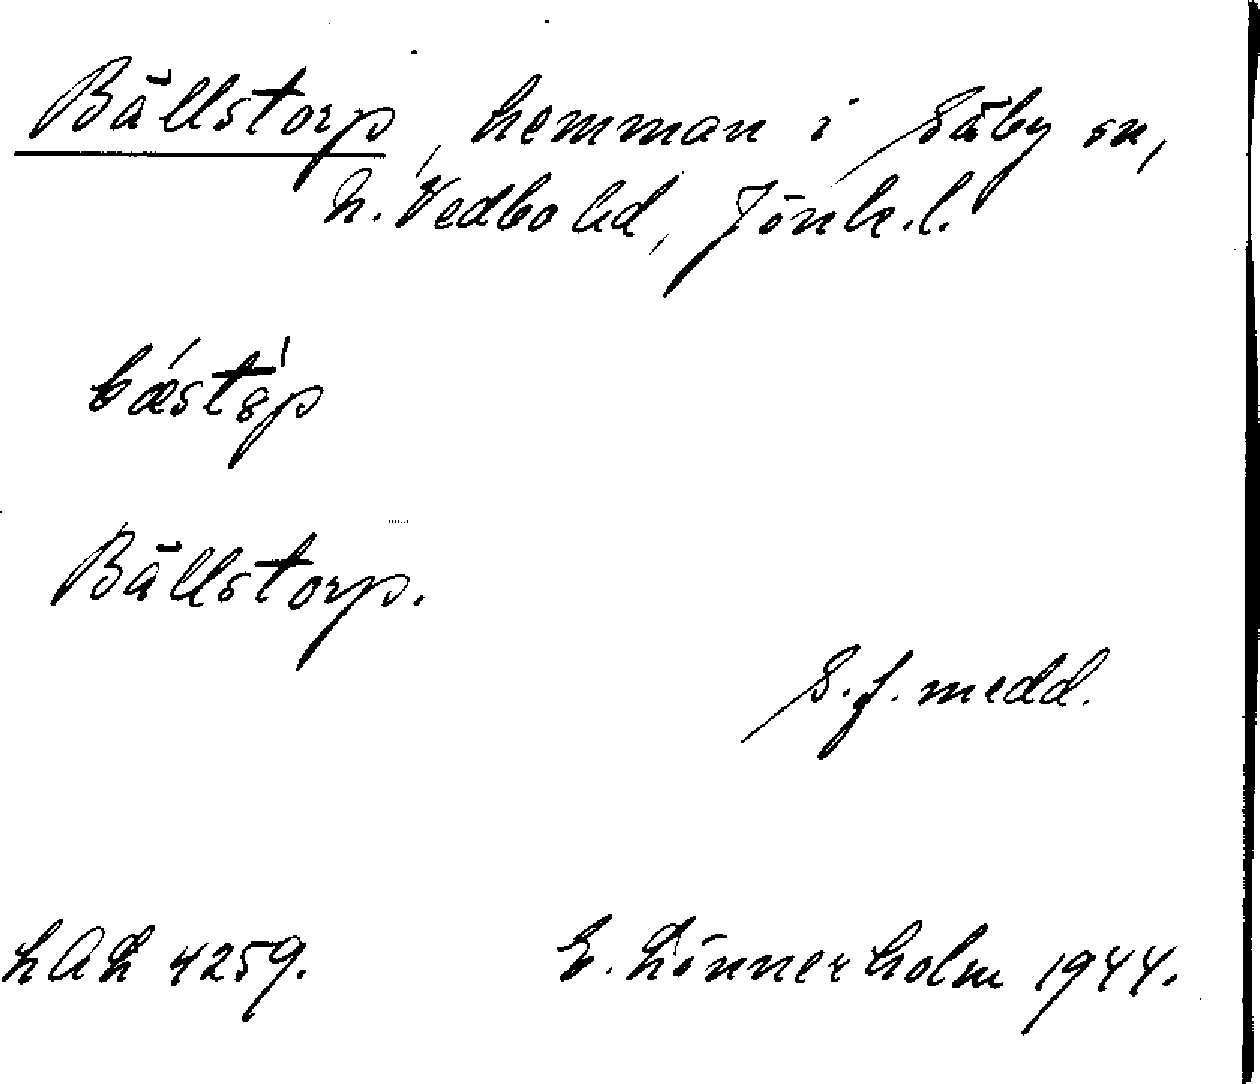 Bällstorp, hemman i Säby sn,
N. Vedbo hd, Jönk. l.
bǽstə̀p
Bällstorp.
S. f. medd.
LAL 4259.
E. Lönnerholm 1944.